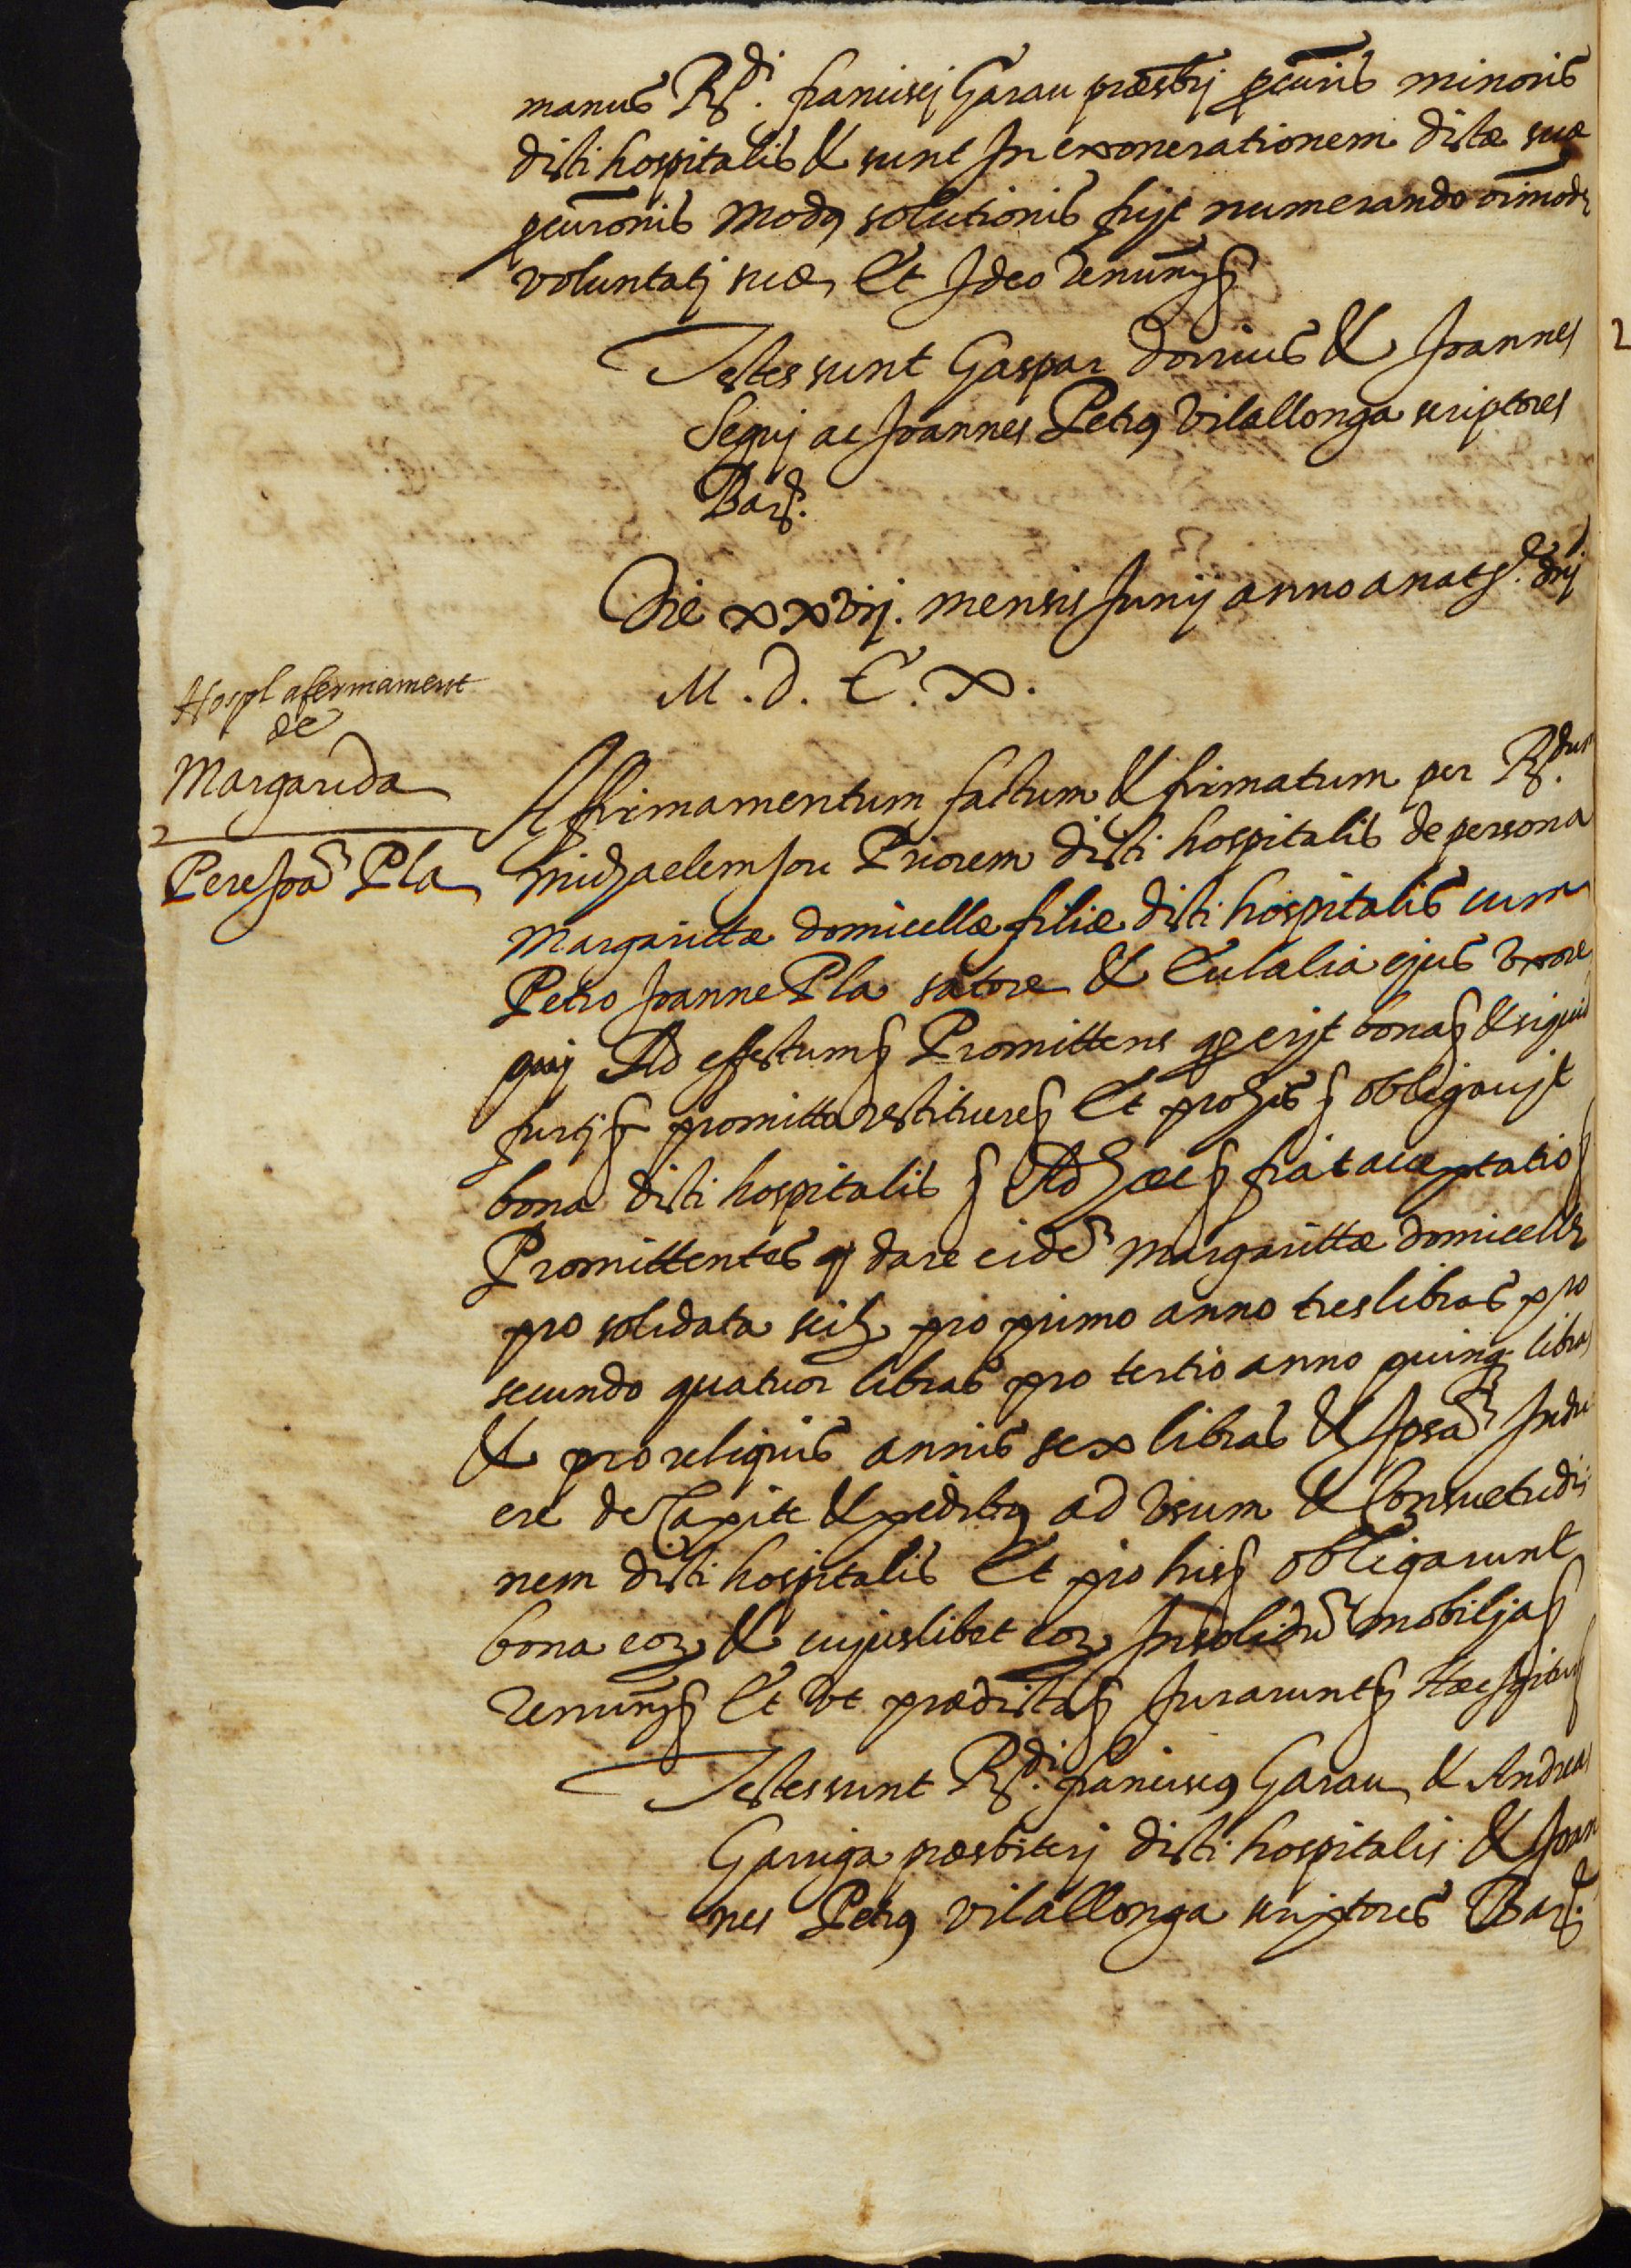 manus Rdi. francisci Garau præsbrj pcuris minoris
dicti hospitalis & sunt In exonerationem dictæ suæ
pcuronis Modus solutionis fuit numerando oimodę
voluntatj suæ, Et Ideo renunȷ̃s
Testes sunt Gaspar dorrius & Joannes
Seguj ac Joannes Petrus Vilallonga scriptores
Bar.
Die xxviij. mensis Junij anno a natē. dnj
M. D. C. X.
Hospl afermament
de
Margarida
Pere Joã Pla
Affirmamentum factum & firmatum per Rdum.
Michaelem Priorem dicti hospitalis de persona
Margarittæ domicellæ filiæ dicti hospitalis cum
Petro Joanne Pla satore & Eulalia ejus Vxore
Ad effectum Promittens q erit bona & siquid
furti promitto restituere Et pro his obligauit
bona dicti hospitalis Ad hæc fiat acceptatio
Promittentes q dare eidẽ Margarittæ domicellę
pro solidata scilz pro primo anno tres libras pro
secundo quatuor libras pro tertio anno quinq libras
& pro reliquis annis sex libras & Ipsã Indu
ere de Capite & pedibus ad Vsum & Consuetudi
nem dicti hospitalis Et pro his obligarunt
bona eoꝝ & cujuslibet eoꝝ Insolidũ mobilja
renunȷ̃s Et Vt prædicta Jurarunt Hæc igitur
Testes sunt Rdi. franciscus Garau & Andreas
Garriga præsbiterj dicti hospitalis & Joan
nes Petrus Vilallonga scriptores Bar.